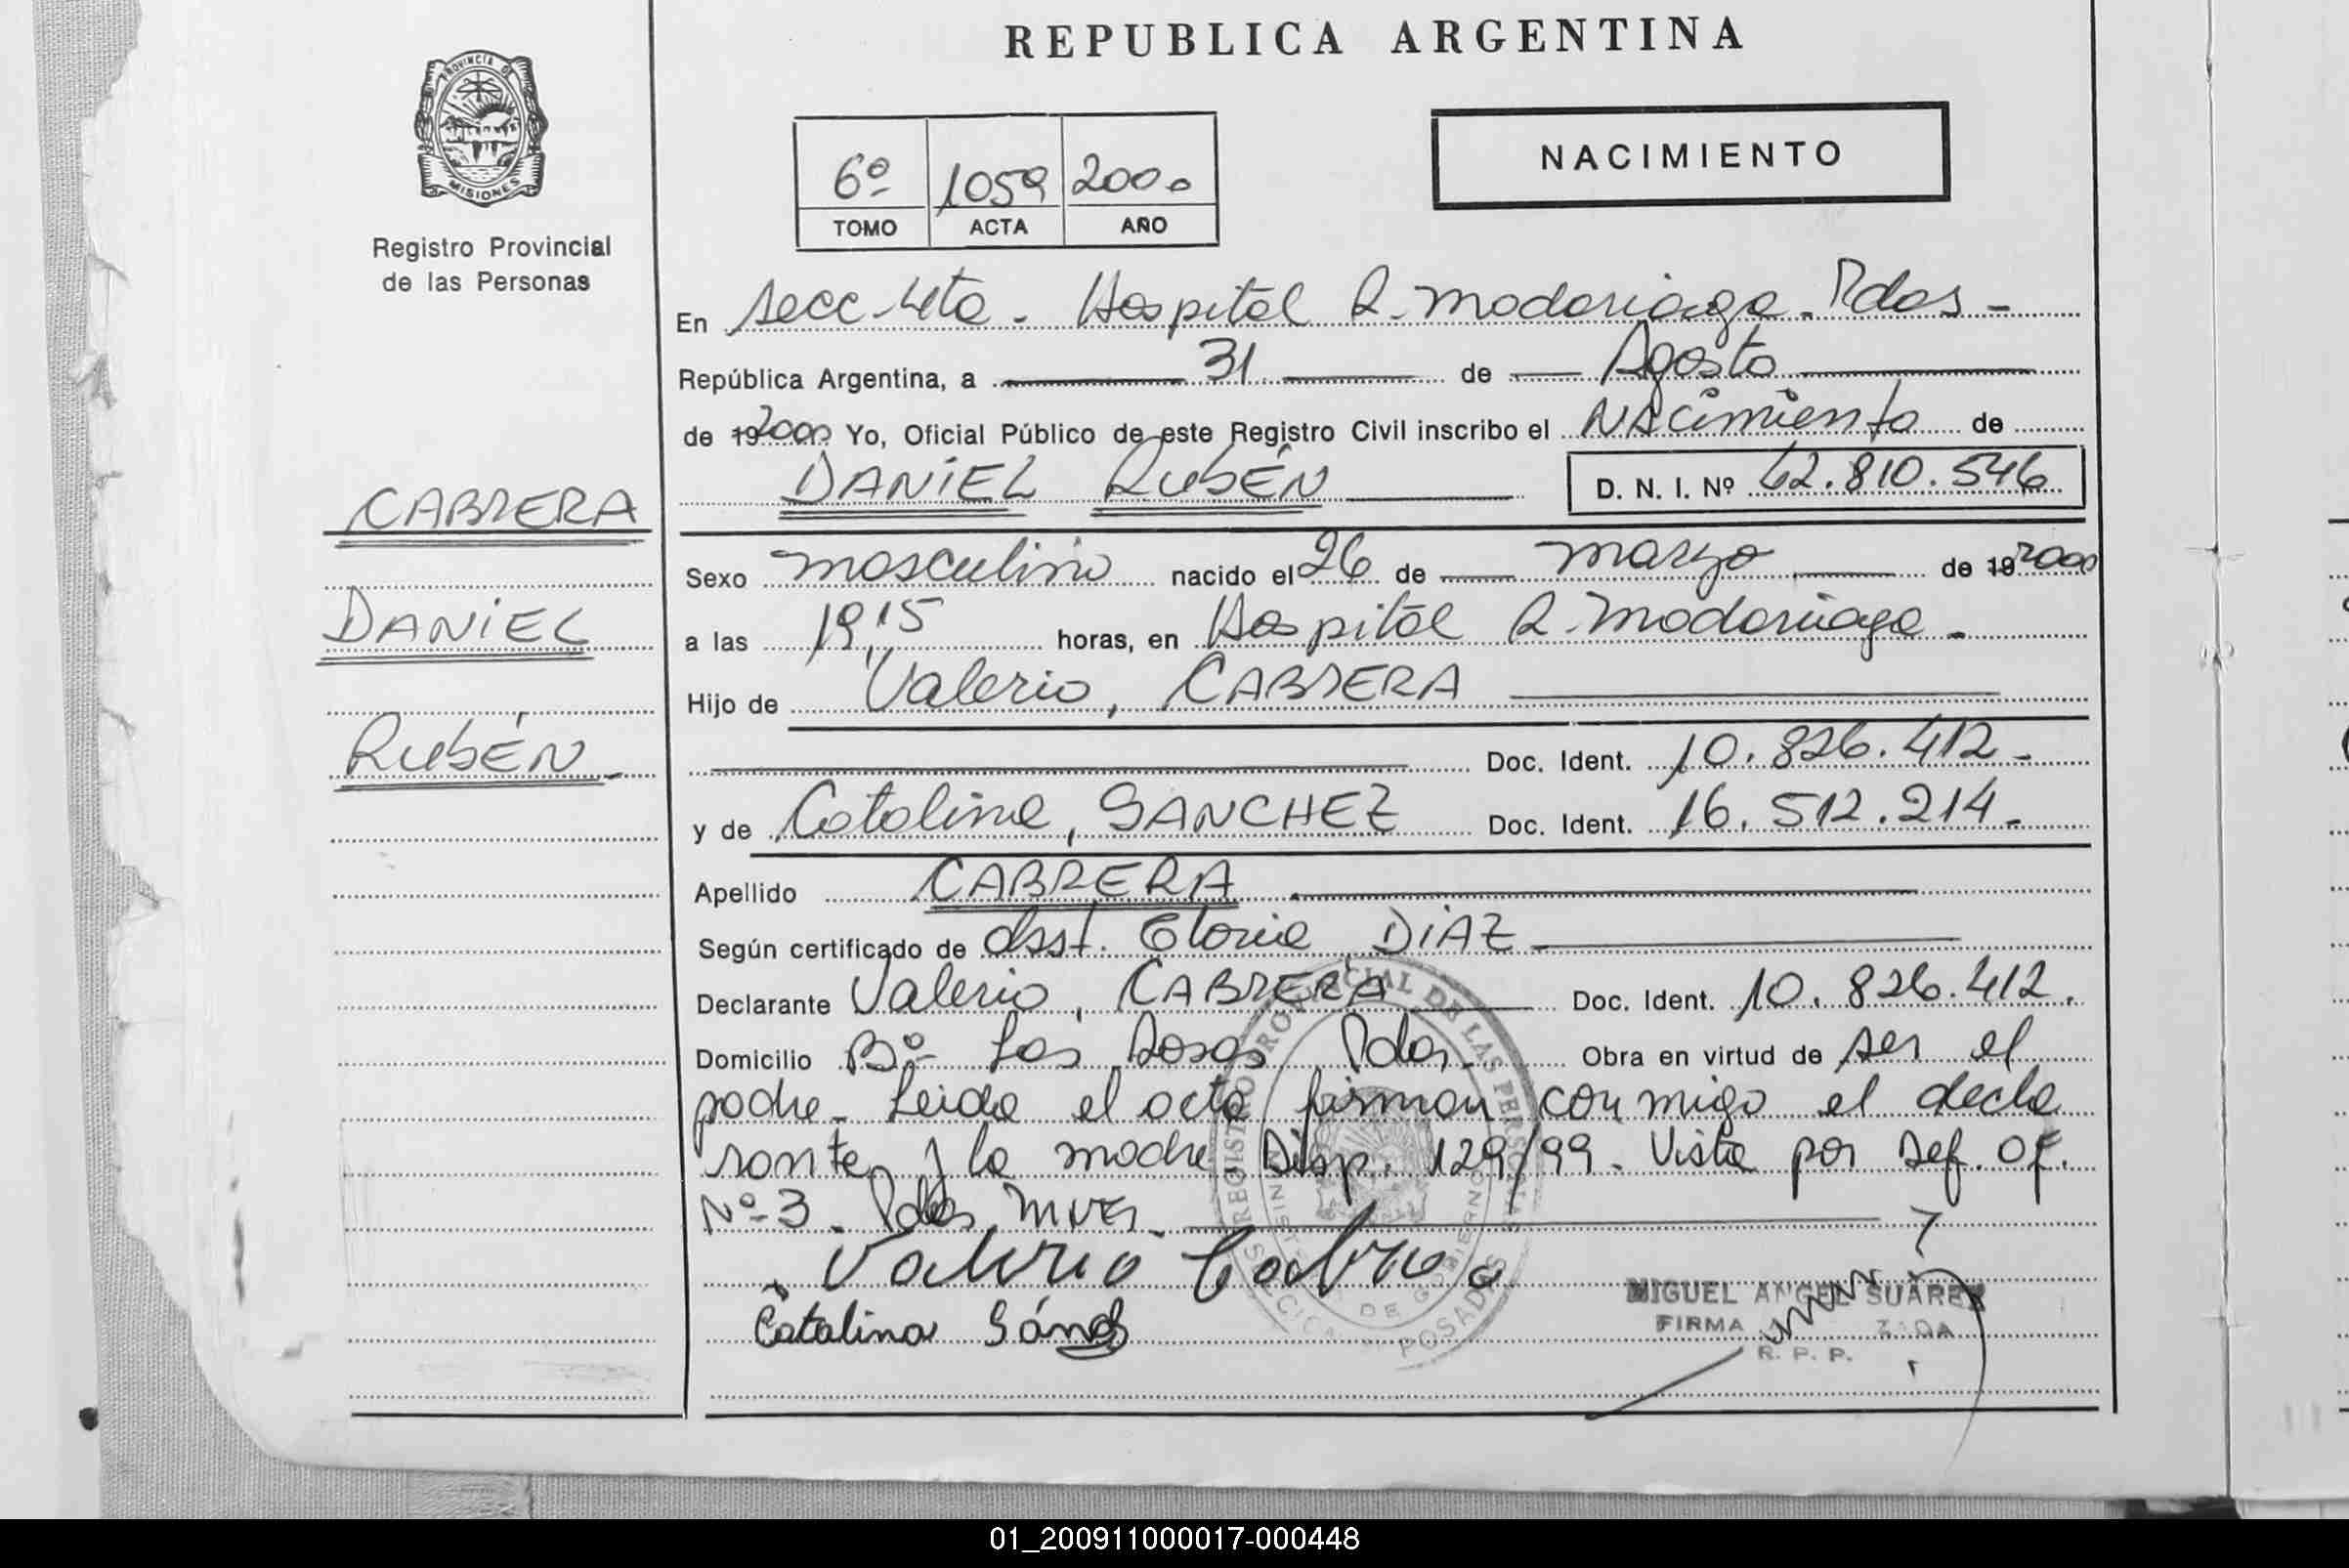 REPUBLICA ARGENTINA
PROVINCIA D
MISIONES
Registro Provincial
de las Personas
6º 1059 2000
TOMO ACTA AÑO
NACIMIENTO
En Secc 4ta. Hospital R. Madariaga. Pdas -
República Argentina, a 31 de Agosto
de 19 2000 Yo, Oficial Público de este Registro Civil inscribo el NAcimiento de
DANIEL RUBÉN D. N. I. Nº 42.810.546
CABRERA
DANIEL
RUBÉN
Sexo masculino nacido el 26 de marzo de 19 2000
a las 19,15 horas, en Hospital R. Madariaga.
Hijo de Valerio, CABRERA
Doc. Ident. 10.826.412.-
y de Catalina, SANCHEZ Doc. Ident. 16.512.214.-
Apellido CABRERA
Según certificado de Obst. Gloria DIAZ
Declarante Valerio, CABRERA Doc. Ident. 10.826.412.
Domicilio Bº Las Rosas Pdas. Obra en virtud de ser el
padre. Leida el acta firman conmigo el decla
rante y la madre Disp. 129/99. Vista por Def. Of.
Nº 3. Pdas. Mnes.
Valerio Cabrera
Catalina Sánch
REGISTRO PROVINCIAL DE LAS PERSONAS
DE GOBIERNO
POSADAS
MIGUEL ANGEL SUAREZ
FIRMA
R. P. P.
01_200911000017-000448